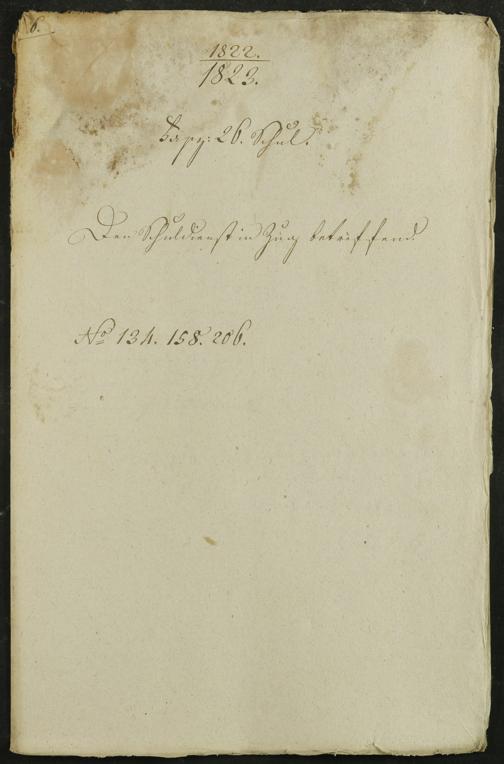 6.
1822.
1823.
26. Schul.
Den Schuldienst in Zug betreffend.
No 134. 158. 206.